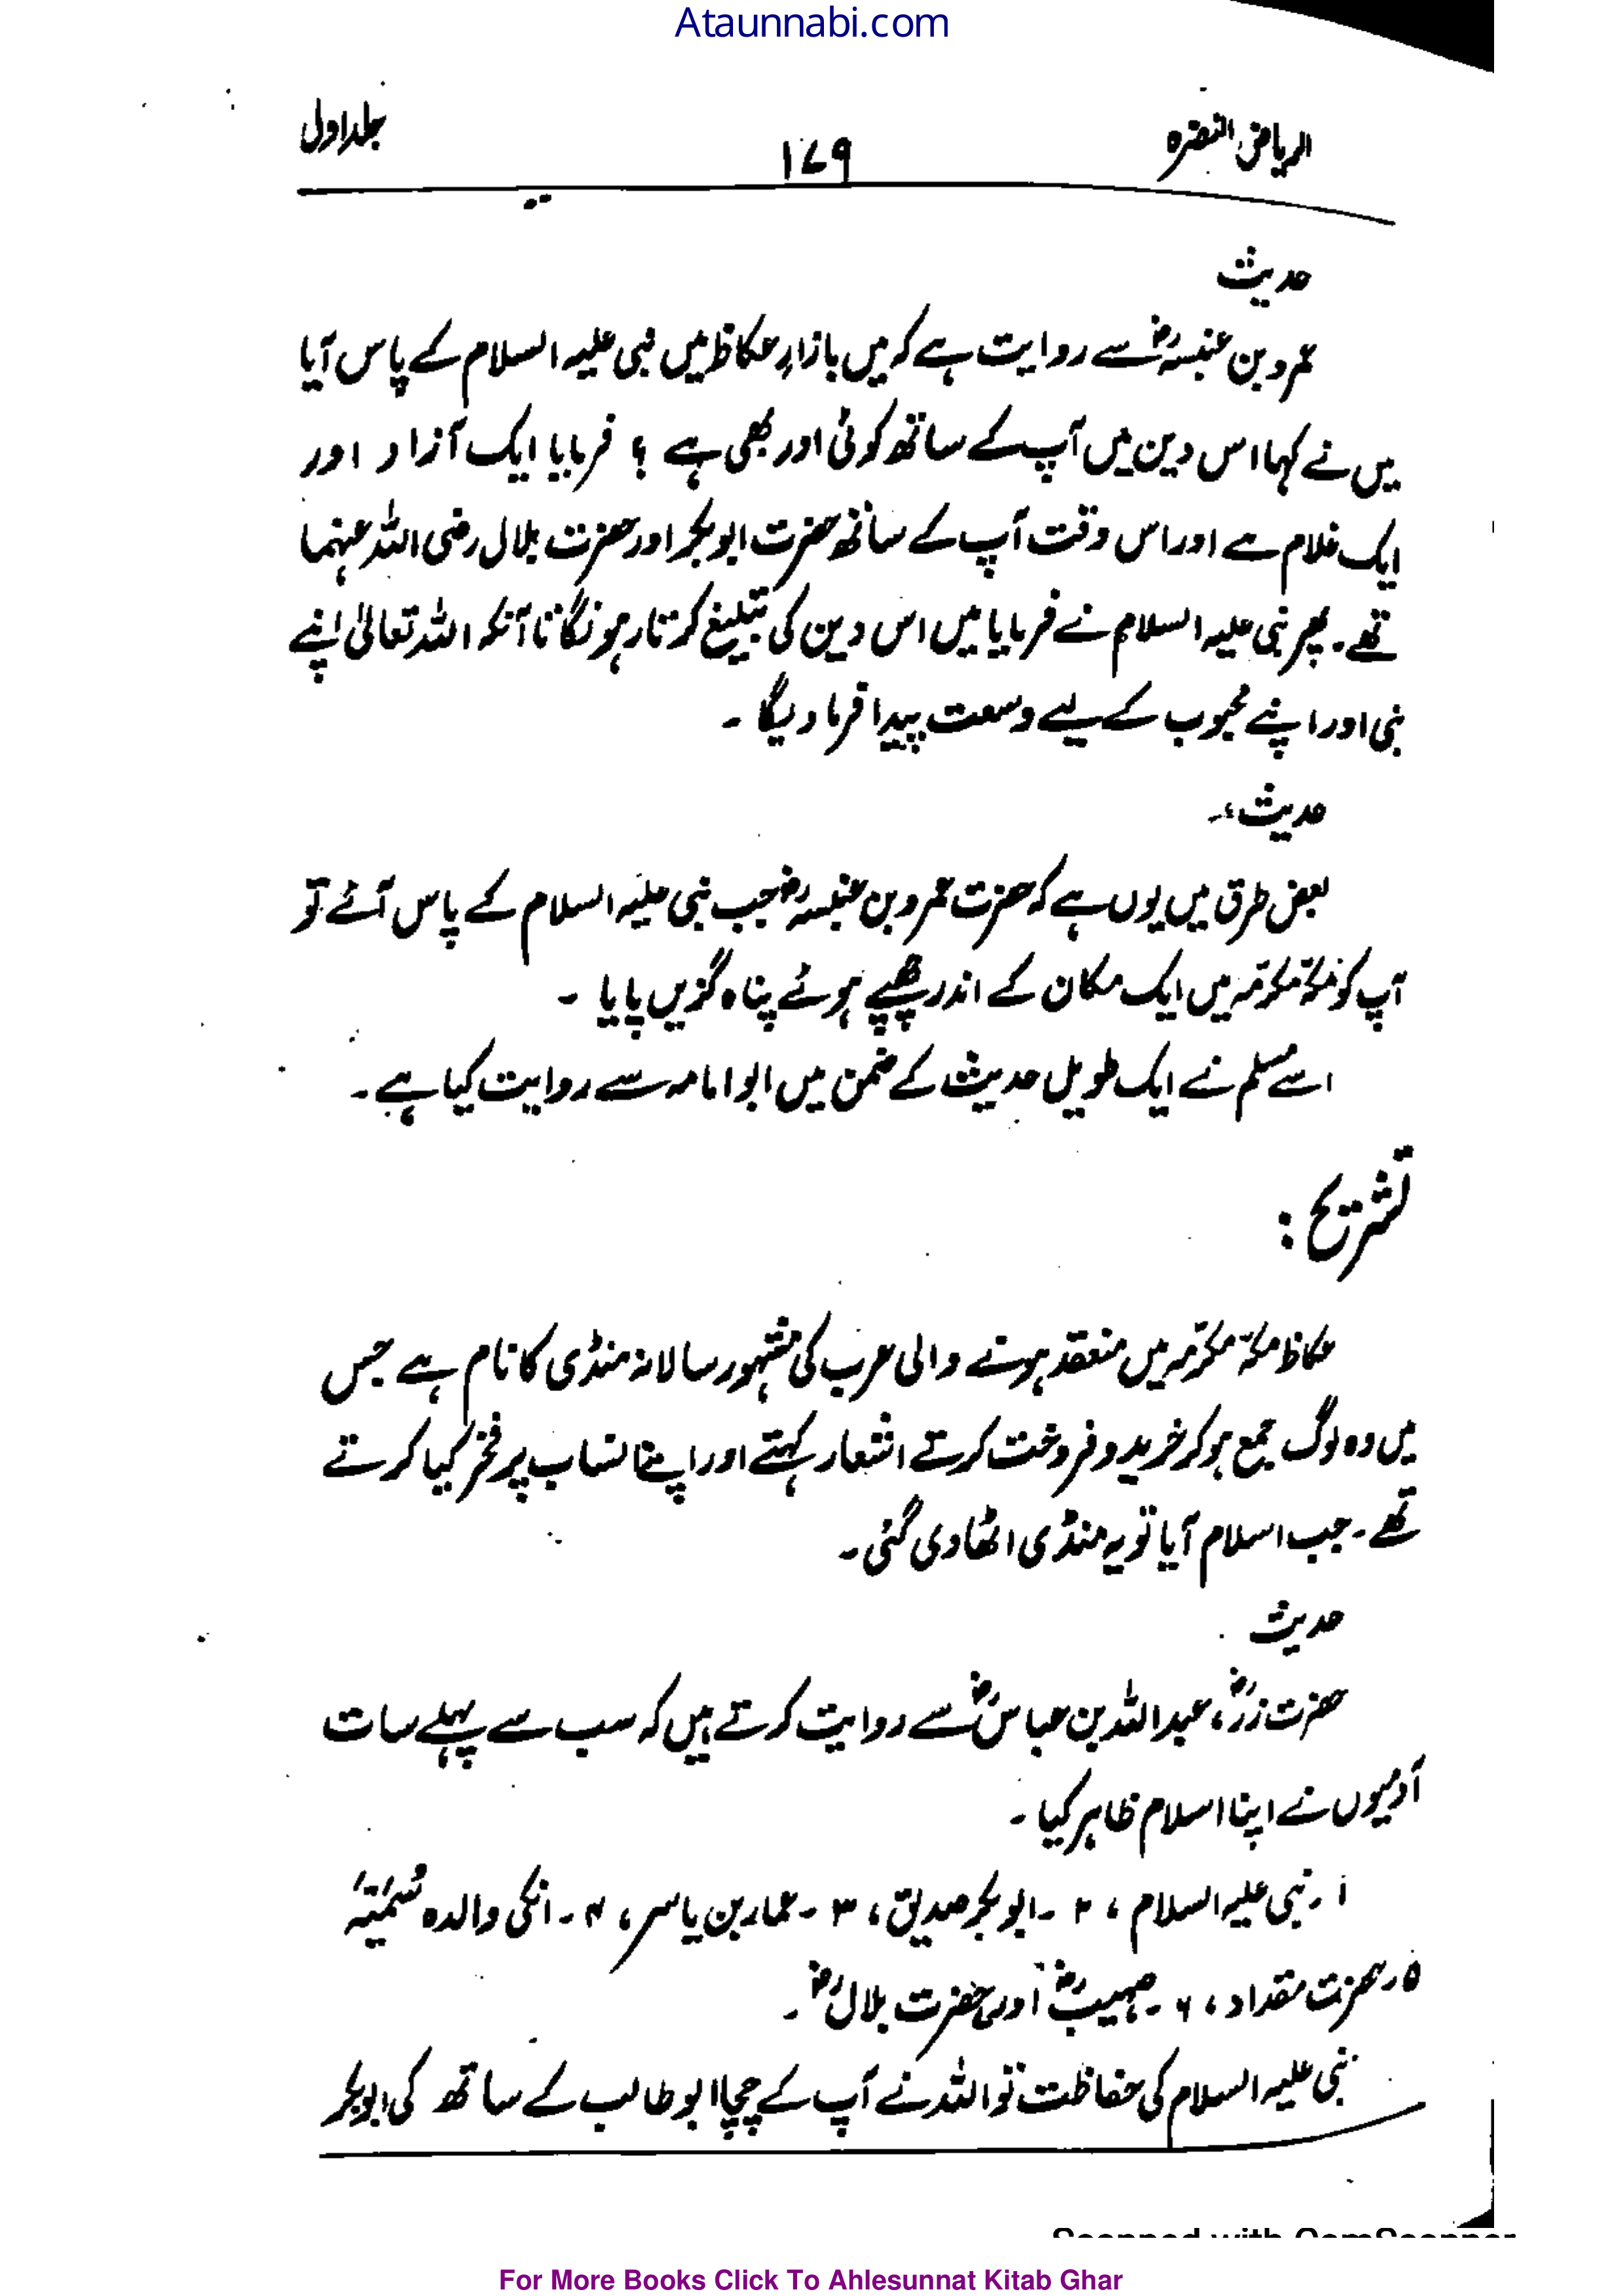 Ataunnabi.com
الریاض النضرہ ۱۷۹ جلد اول
حدیث
عمرو بن عنبسہؓ سے روایت ہے کہ میں بازارِ عکاظ میں نبی علیہ السلام کے پاس آیا
میں نے کہا اس دین میں آپ کے ساتھ کوئی اور بھی ہے ؟ فرمایا ایک آزاد اور
ایک غلام ہے اور اس وقت آپ کے ساتھ حضرت ابوبکر اور حضرت بلال رضی اللہ عنہما
تھے۔ پھر نبی علیہ السلام نے فرمایا میں اس دین کی تبلیغ کرتا رہونگا تا آنکہ اللہ تعالیٰ اپنے
نبی اور اپنے محبوب کے لیے وسعت پیدا فرما دیگا ۔
حدیث،۔
بعض طرق میں یوں ہے کہ حضرت عمرو بن عنبسہؓ جب نبی علیہ السلام کے پاس آئے تو
آپ کو مکہ مکرمہ میں ایک مکان کے اندر چھپے ہوئے پناہ گزیں پایا ۔
اسے مسلم نے ایک طویل حدیث کے ضمن میں ابوامامہ سے روایت کیا ہے ۔
تشریح :
عکاظ مکہ مکرمہ میں منعقد ہونے والی عرب کی مشہور سالانہ منڈی کا نام ہے جس
میں وہ لوگ جمع ہو کر خرید و فروخت کرتے اشعار کہتے اور اپنے انساب پر فخر کیا کرتے
تھے ۔ جب اسلام آیا تو یہ منڈی اٹھا دی گئی ۔
حدیث
حضرت زرؓ، عبداللہ بن عباسؓ سے روایت کرتے ہیں کہ سب سے پہلے سات
آدمیوں نے اپنا اسلام ظاہر کیا ۔
۱۔ نبی علیہ السلام ، ۲ ۔ ابوبکر صدیق ، ۳ ۔ عمار بن یاسر ، ۴ ۔ انکی والدہ سُمَیَّہ
۵ ۔ حضرت مقداد ، ۶ ۔ صہیبؓ اور حضرت بلالؓ ۔
نبی علیہ السلام کی حفاظت تو اللہ نے آپ کے چچا ابو طالب کے ساتھ کی ابوبکر
Scanned with CamScanner
For More Books Click To Ahlesunnat Kitab Ghar